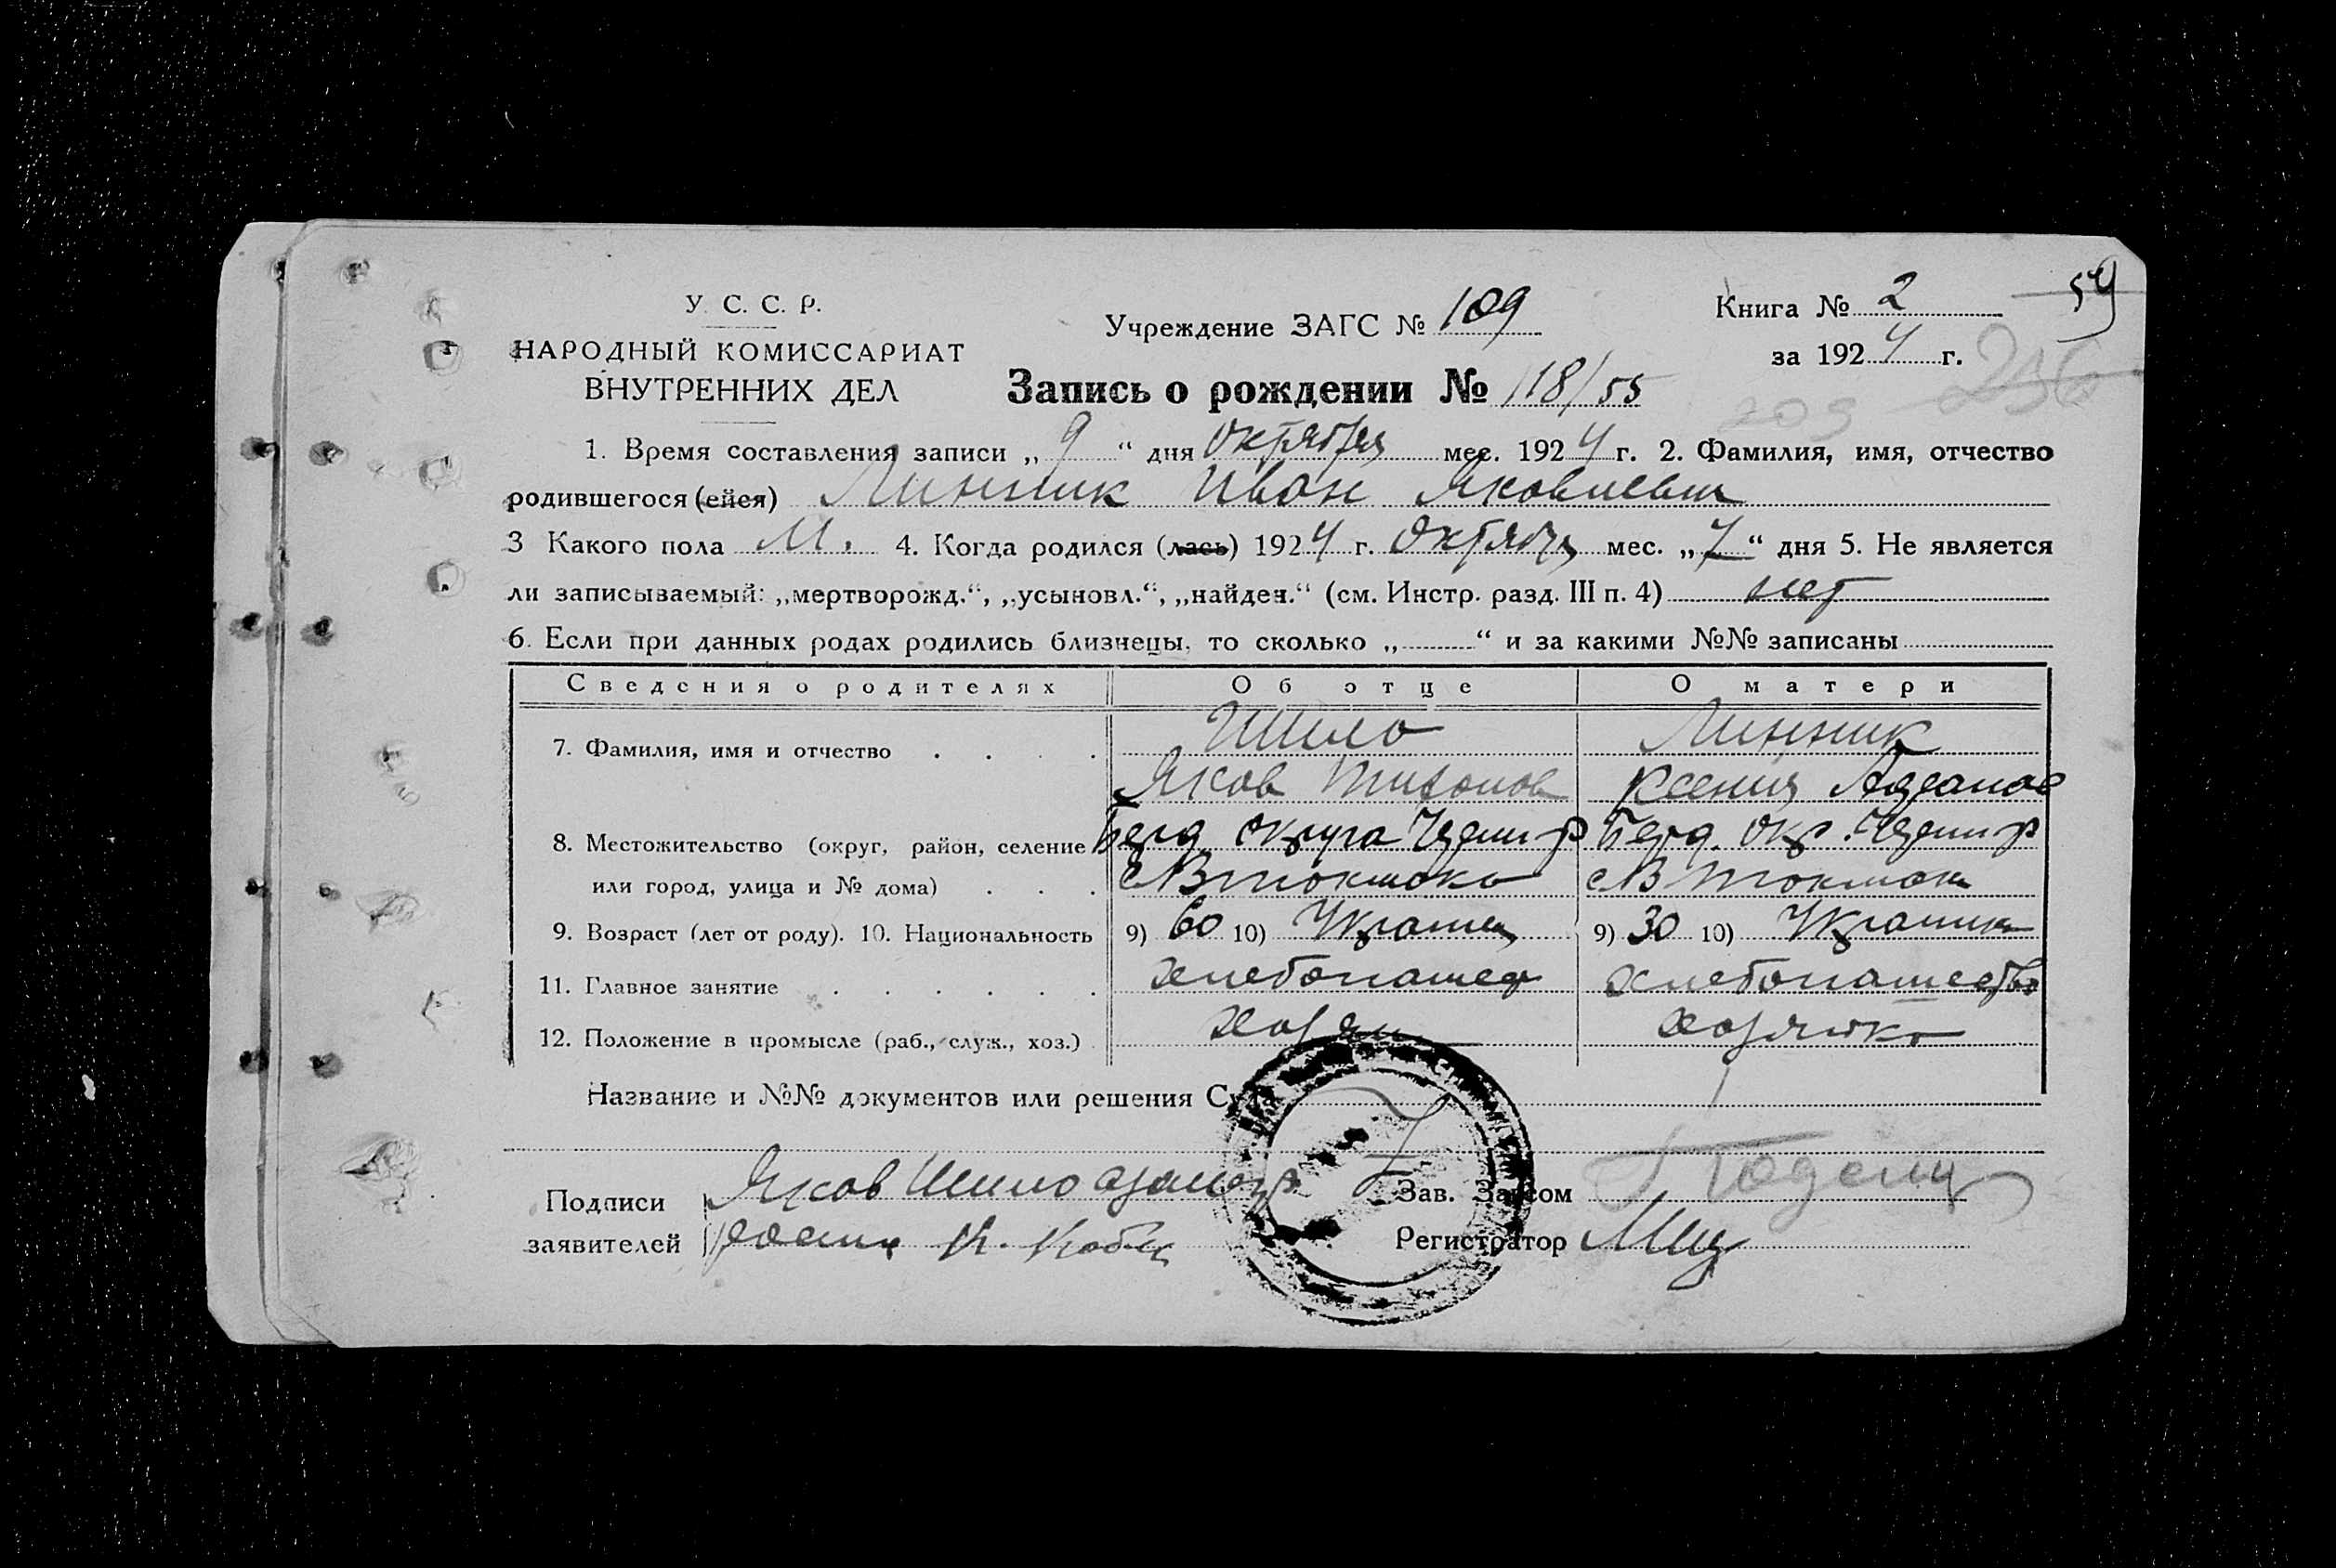 У. С. С. Р.
НАРОДНЫЙ КОМИССАРИАТ
ВНУТРЕННИХ ДЕЛ
Учреждение ЗАГС № 109
Книга № 2
за 1924 г.
59
256
209
Запись о рождении № 118/55
1. Время составления записи „ 9 “ дня Октября мес. 1924 г. 2. Фамилия, имя, отчество
родившегося (ейся) Линник Иван Яковлевич
3 Какого пола М. 4. Когда родился (лась) 1924 г. Октября мес. „ 7 “ дня 5. Не является
ли записываемый: „мертворожд.“, „усыновл.“, „найден.“ (см. Инстр. разд. III п. 4) нет
6. Если при данных родах родились близнецы, то сколько „ “ и за какими №№ записаны
Сведения о родителях Об отце О матери
7. Фамилия, имя и отчество . . . . Шило Линник
Яков Тихонов Ксения
8. Местожительство (округ, район, селение Берд. округа р Берд. окр. р
или город, улица и № дома) . . . с В Токмак с В Токмак
9. Возраст (лет от роду). 10. Национальность 9) 60 10) Украинец 9) 30 10) Украинка
11. Главное занятие . . . . . . хлебопашество хлебопашество
12. Положение в промысле (раб., служ., хоз.) хозяин хозяйка
Название и №№ документов или решения Суда
Подписи Яков Шило Зав. Загсом
заявителей К. Регистратор